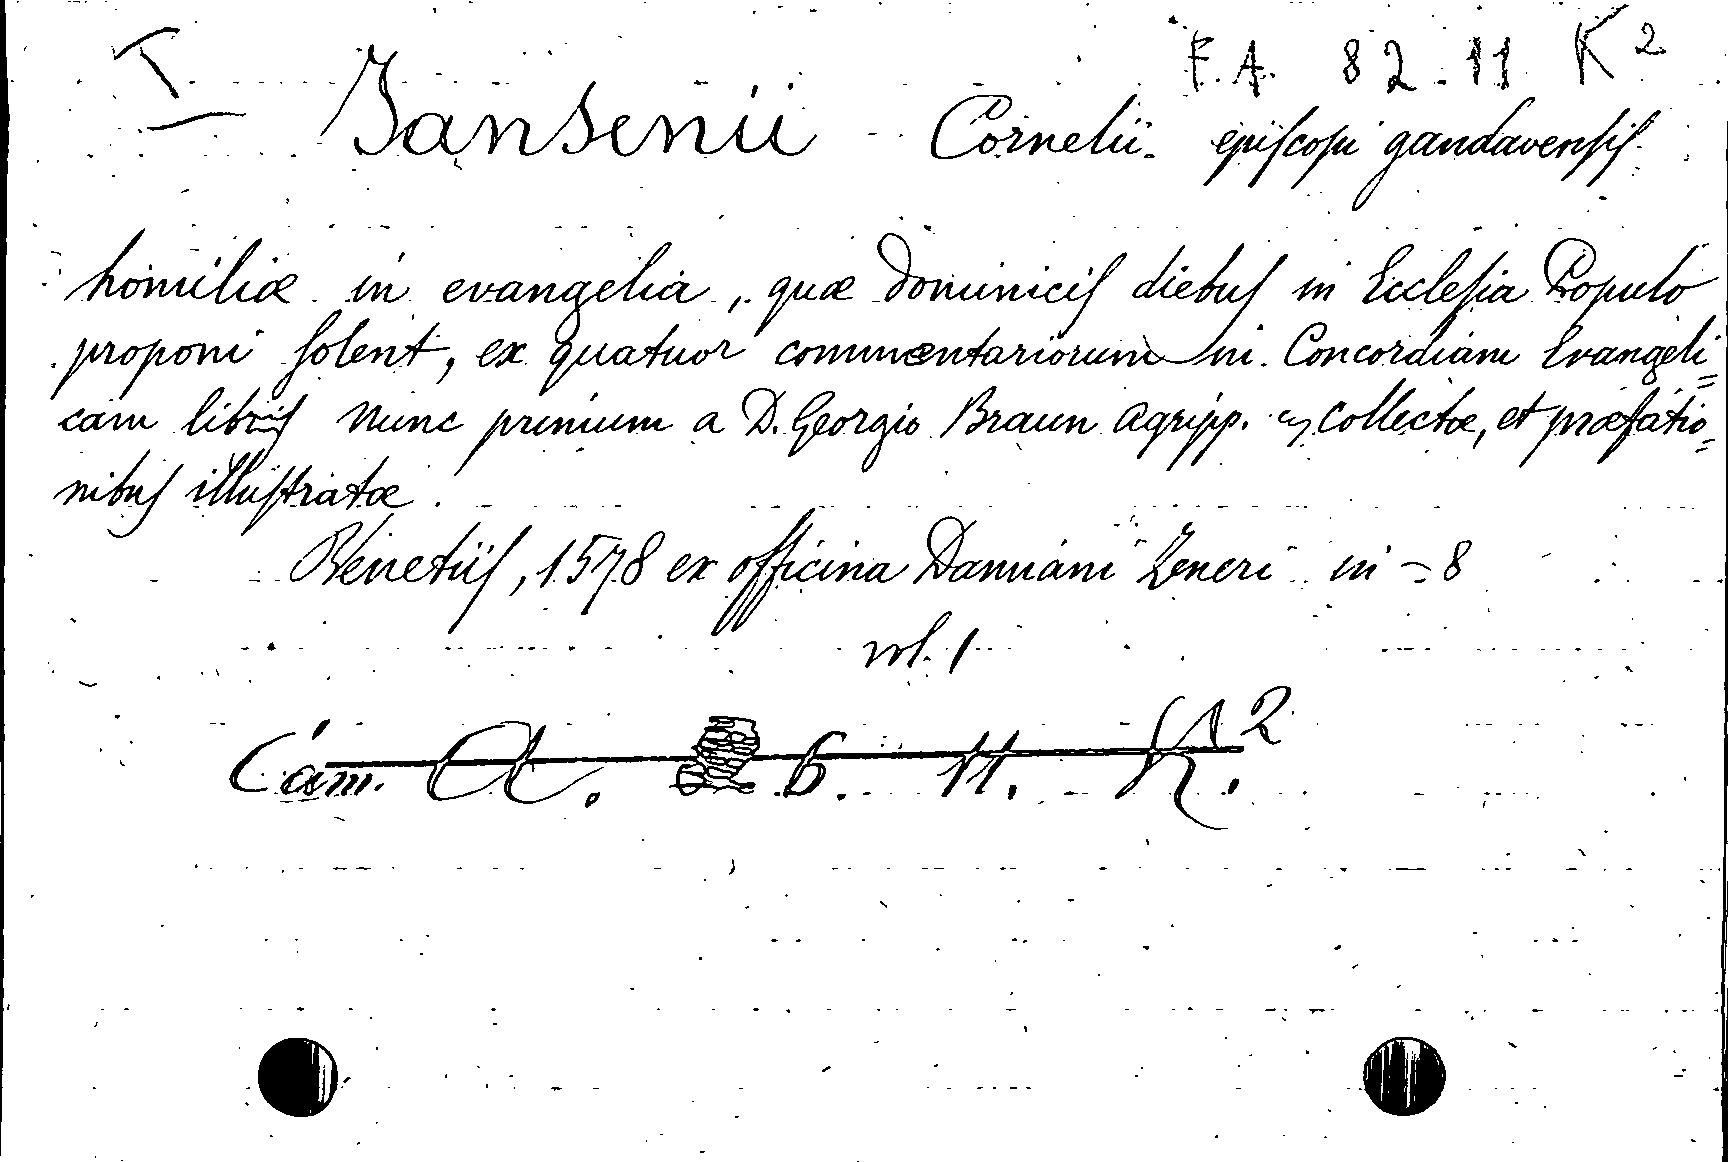 I F.A. 82.11 K²
Jansenii Cornelii. epiſcopi gandavenſiſ
homiliæ in evangelia, quæ Dominiciſ diebuſ in Eccleſia Populo
proponi ſolent, ex quatuor commentariorum in Concordiam Evangeli=
cam libriſ nunc primum a D. Georgio Braun Agripp. collectæ, et præfatio=
nibuſ illuſtratæ.
Venetiiſ, 1578 ex officina Damiani Zeneri in-8
vol. 1
Cam. A. 6. 11. K.²